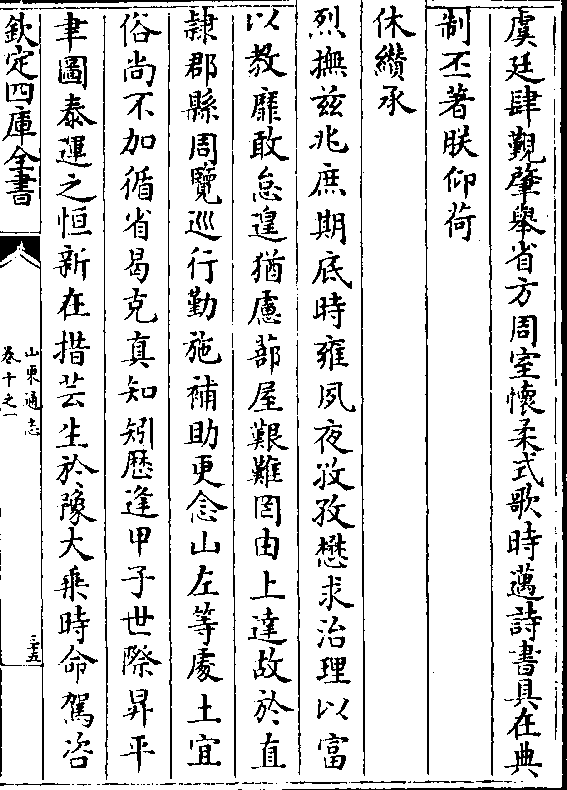 虞廷肆覲肇舉省方周室懷柔式歌時邁詩書具在典
制丕著朕仰荷
休纘承
烈撫兹兆庶期底時雍夙夜孜孜懋求治理以富
以教靡敢怠遑猶慮蔀屋艱難罔由上達故於直
隷郡縣周覽巡行勤施補助更念山左等處土宜
俗尚不加循省曷克真知矧歴逢甲子世際昇平
聿圖泰運之恒新在措芸生於豫大乗時命駕咨
欽定四庫全書
山東通志
卷十之一
三十五